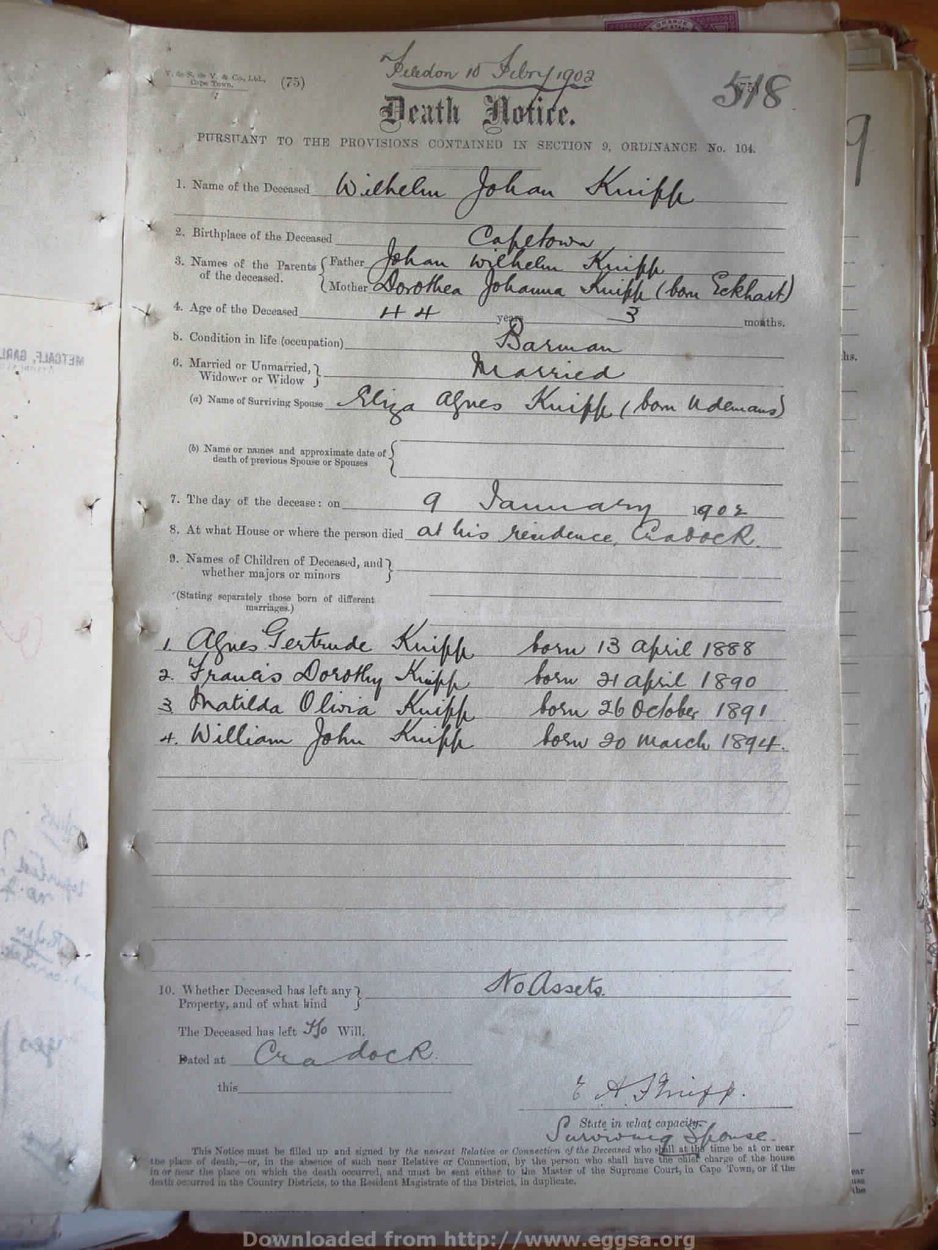 V. & S. de V. & Co., Ltd.,
Cape Town.
(75)
Filed on 10 Febry 1902
518
Death Notice.
PURSUANT TO THE PROVISIONS CONTAINED IN SECTION 9, ORDINANCE No. 104.
1. Name of the Deceased Wilhelm Johan Knipp
2. Birthplace of the Deceased Capetown
3. Names of the Parents of the deceased. { Father Johan Wilhelm Knipp
{ Mother Dorothea Johanna Knipp (born Eckhart)
4. Age of the Deceased 44 years 3 months.
5. Condition in life (occupation) Barman
6. Married or Unmarried, Widower or Widow } Married
(a) Name of Surviving Spouse Eliza Agnes Knipp (born Udemans)
(b) Name or names and approximate date of
death of previous Spouse or Spouses
7. The day of the decease: on 9 January 1902
8. At what House or where the person died at his residence, Cradock.
9. Names of Children of Deceased, and
whether majors or minors
(Stating separately those born of different
marriages.)
1. Agnes Gertrude Knipp born 13 April 1888
2. Francis Dorothy Knipp born 21 April 1890
3 Matilda Olivia Knipp born 26 October 1891
4. William John Knipp born 20 March 1894.
10. Whether Deceased has left any
Property, and of what kind } No Assets.
The Deceased has left No Will.
Dated at Cradock.
this
E A Knipp.
State in what capacity.
Surviving Spouse.
This Notice must be filled up and signed by the nearest Relative or Connection of the Deceased who shall at the time be at or near
the place of death,—or, in the absence of such near Relative or Connection, by the person who shall have the chief charge of the house
in or near the place on which the death occurred, and must be sent either to the Master of the Supreme Court, in Cape Town, or if the
death occurred in the Country Districts, to the Resident Magistrate of the District, in duplicate.
Downloaded from http://www.eggsa.org